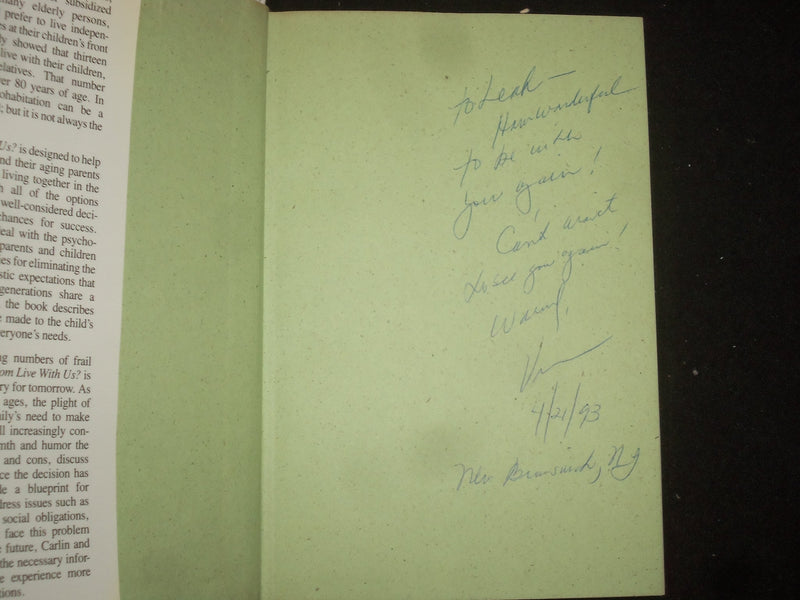 subsidized
many elderly persons,
prefer to live indepen-
es at their children's front
ly showed that thirteen
live with their children,
elatives. That number
er 80 years of age. In
ohabitation can be a
; but it is not always the
Us? is designed to help
nd their aging parents
living together in the
h all of the options
well-considered deci-
chances for success.
eal with the psycho-
parents and children
es for eliminating the
stic expectations that
generations share a
the book describes
e made to the child's
eryone's needs.
ng numbers of frail
om Live With Us? is
ry for tomorrow. As
ages, the plight of
ily's need to make
ll increasingly con-
mth and humor the
and cons, discuss
ce the decision has
de a blueprint for
dress issues such as
social obligations,
face this problem
e future, Carlin and
the necessary infor-
e experience more
tions.
To Leah —
How wonderful
to be with
you again!
Can't wait
to see you again!
Warmly,
4/21/93
New Brunswick, NJ